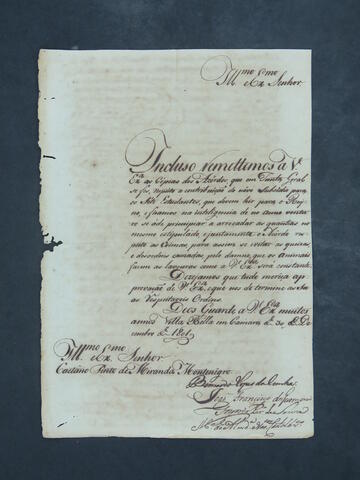 Ill.mo e Ex.mo Senhor
Incluso remettemos à V.
Ex.a as Cópias dos Acordos, que em Junta Geral
se fes, respeito a contribuição do novo Subsidio para
os Estudantes, que devem hir para o Rey
no, e ficamos na inteligencia de no anno vindou
ro se ade prencipiar a arrecadar as quantias
no mesmo estipuladas, e juntamente o Acordo res
peito as Coimas para se evitar as queixas,
e desordens cauzadas pelo damno, que os animais
fazem as lavouras como a V. Ex.a será constante.
Dezejamos que tudo mereça a
aprovação de V. Ex.a, e que nos determine as su
as respeitaveis Ordens.
Deos Guarde a V. Ex.a muitos
annos Villa Bella em Camara de 30 de De
zembro de 1801
Ill.mo e Ex.mo Senhor
Caetano Pinto de Miranda Montenegro
Bernardo Lopes da Cunha
José Francisco